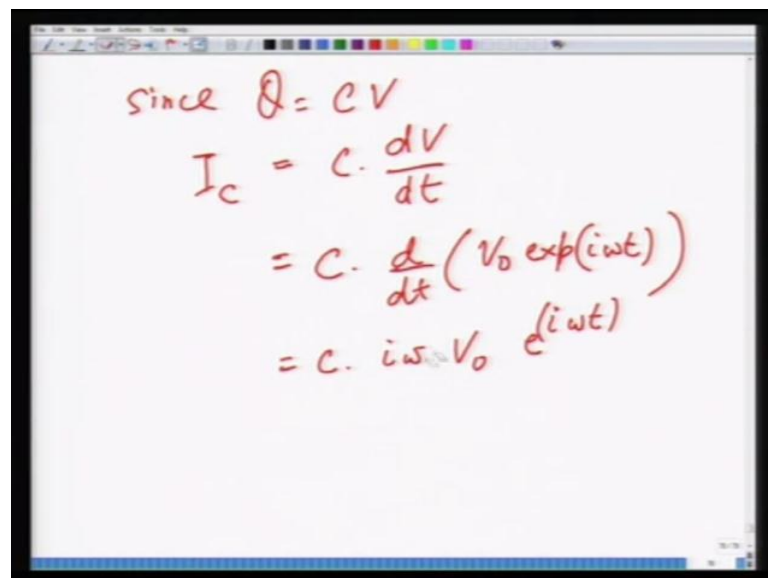 File Edit View Insert Actions Tools Help
since Q = CV
I_c = C. dV/dt
= C. d/dt (V₀ exp(iωt))
= C. iω. V₀ e^(iωt)